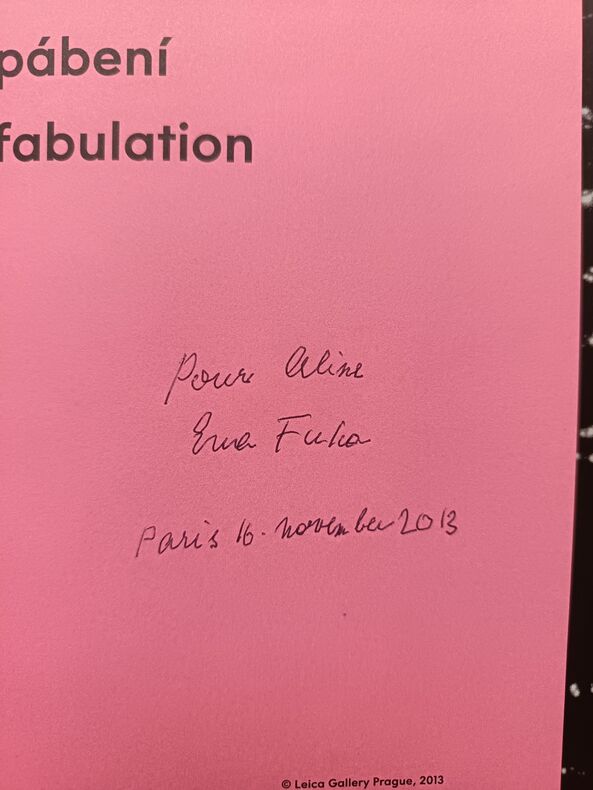 pábení
fabulation
Pour Aline
Eva Fuka
Paris 16. november 2013
© Leica Gallery Prague, 2013